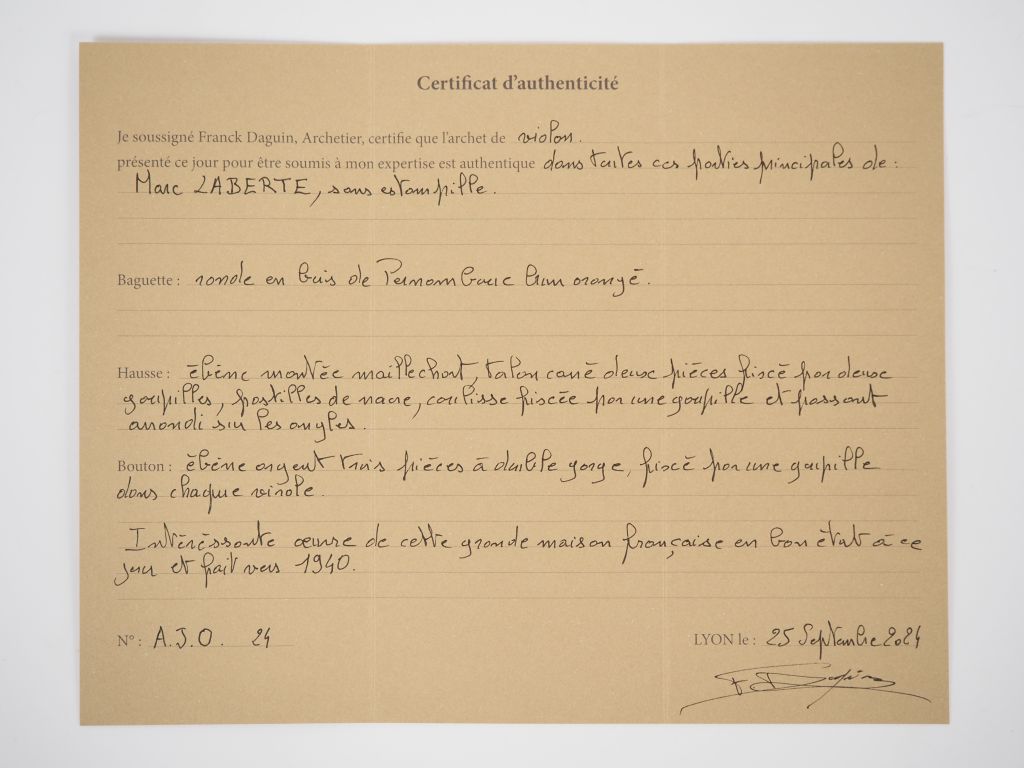 Certificat d'authenticité
Je soussigné Franck Daguin, Archetier, certifie que l'archet de violon.
présenté ce jour pour être soumis à mon expertise est authentique dans toutes ces parties principales de :
Marc LABERTE, sans estampille.
Baguette : ronde en bois de Pernambouc brun orangé.
Hausse : ébène montée maillechort, talon carré deux pièces fixé par deux
goupilles, pastilles de nacre, coulisse fixée par une goupille et passant
arrondi sur les angles.
Bouton : ébène argent trois pièces à double gorge, fixé par une goupille
dans chaque virole.
Intéréssante œuvre de cette grande maison française en bon état à ce
jour et fait vers 1940.
N° : A.J.O. 24
LYON le : 25 Septembre 2024
F. Daguin